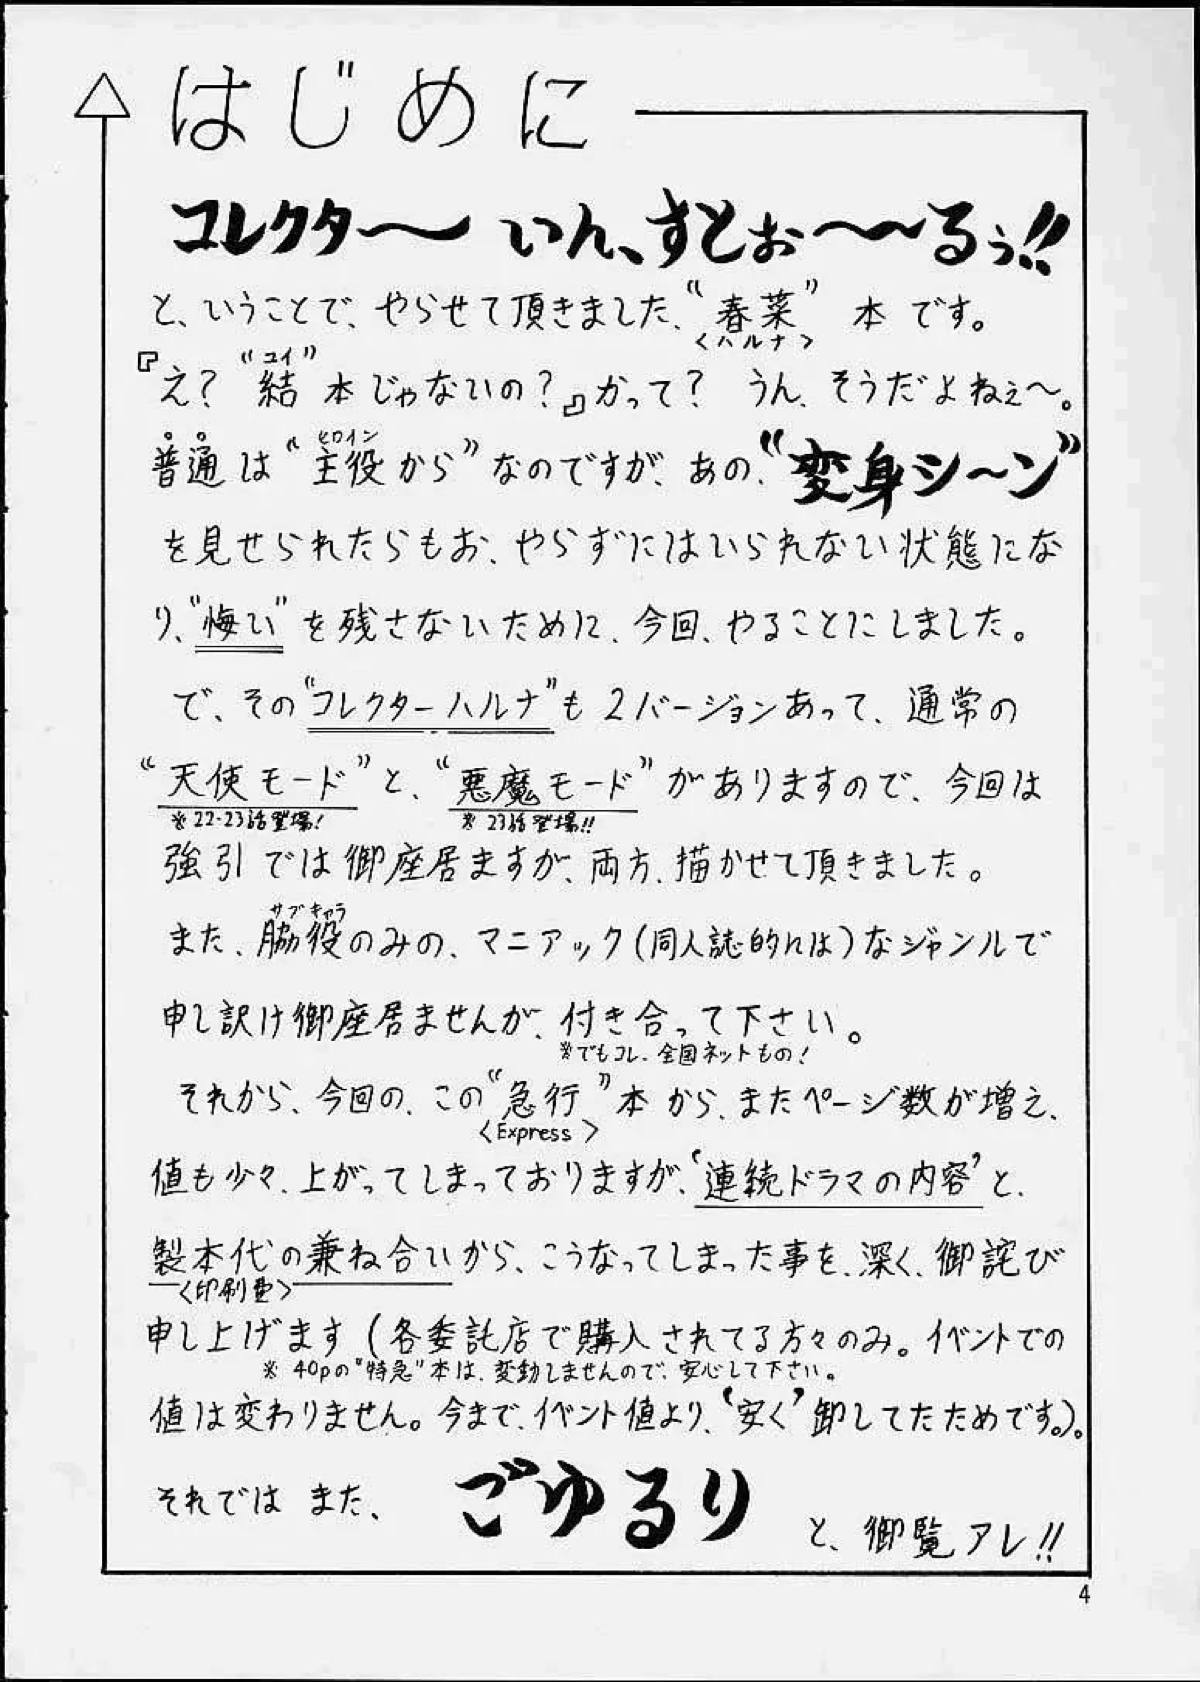 はじめに
コレクタ〜 いん、すとぉ〜〜るぅ!!
と、いうことで、やらせて頂きました、“春菜” 本です。
<ハルナ>
“ユイ”
『え? 結 本じゃないの?』かって? うん、そうだよねぇ〜。
ヒロイン
普通は“主役から”なのですが、あの、“変身シ〜ン”
を見せられたらもお、やらずにはいられない状態にな
り、“悔い”を残さないために、今回、やることにしました。
で、その“コレクター・ハルナ”も2バージョンあって、通常の
“天使モード”と、“悪魔モード”がありますので、今回は
※22-23話登場! ※23話登場!!
強引では御座居ますが、両方、描かせて頂きました。
サブキャラ
また、脇役のみの、マニアック(同人誌的には)なジャンルで
申し訳け御座居ませんが、付き合って下さい。
※でもコレ、全国ネットもの!
それから、今回の、この“急行”本から、またページ数が増え、
<Express>
値も少々、上がってしまっておりますが、‘連続ドラマの内容’と、
製本代の兼ね合いから、こうなってしまった事を、深く、御詫び
<印刷費>
申し上げます(各委託店で購入されてる方々のみ。イベントでの
※40pの“特急”本は、変動しませんので、安心して下さい。
値は変わりません。今まで、イベント値より、‘安く’卸してたためです。)。
それでは また、 ごゆるり と、御覧アレ!!
4